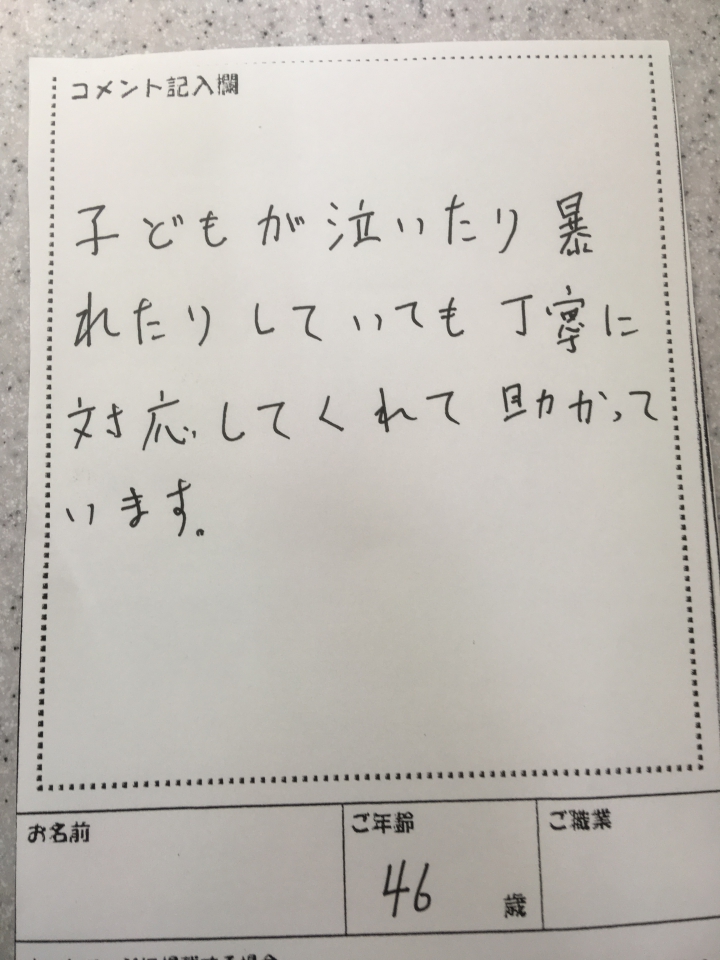 コメント記入欄
子どもが泣いたり暴
れたりしていても丁寧に
対応してくれて助かって
います。
お名前
ご年齢
ご職業
46
歳